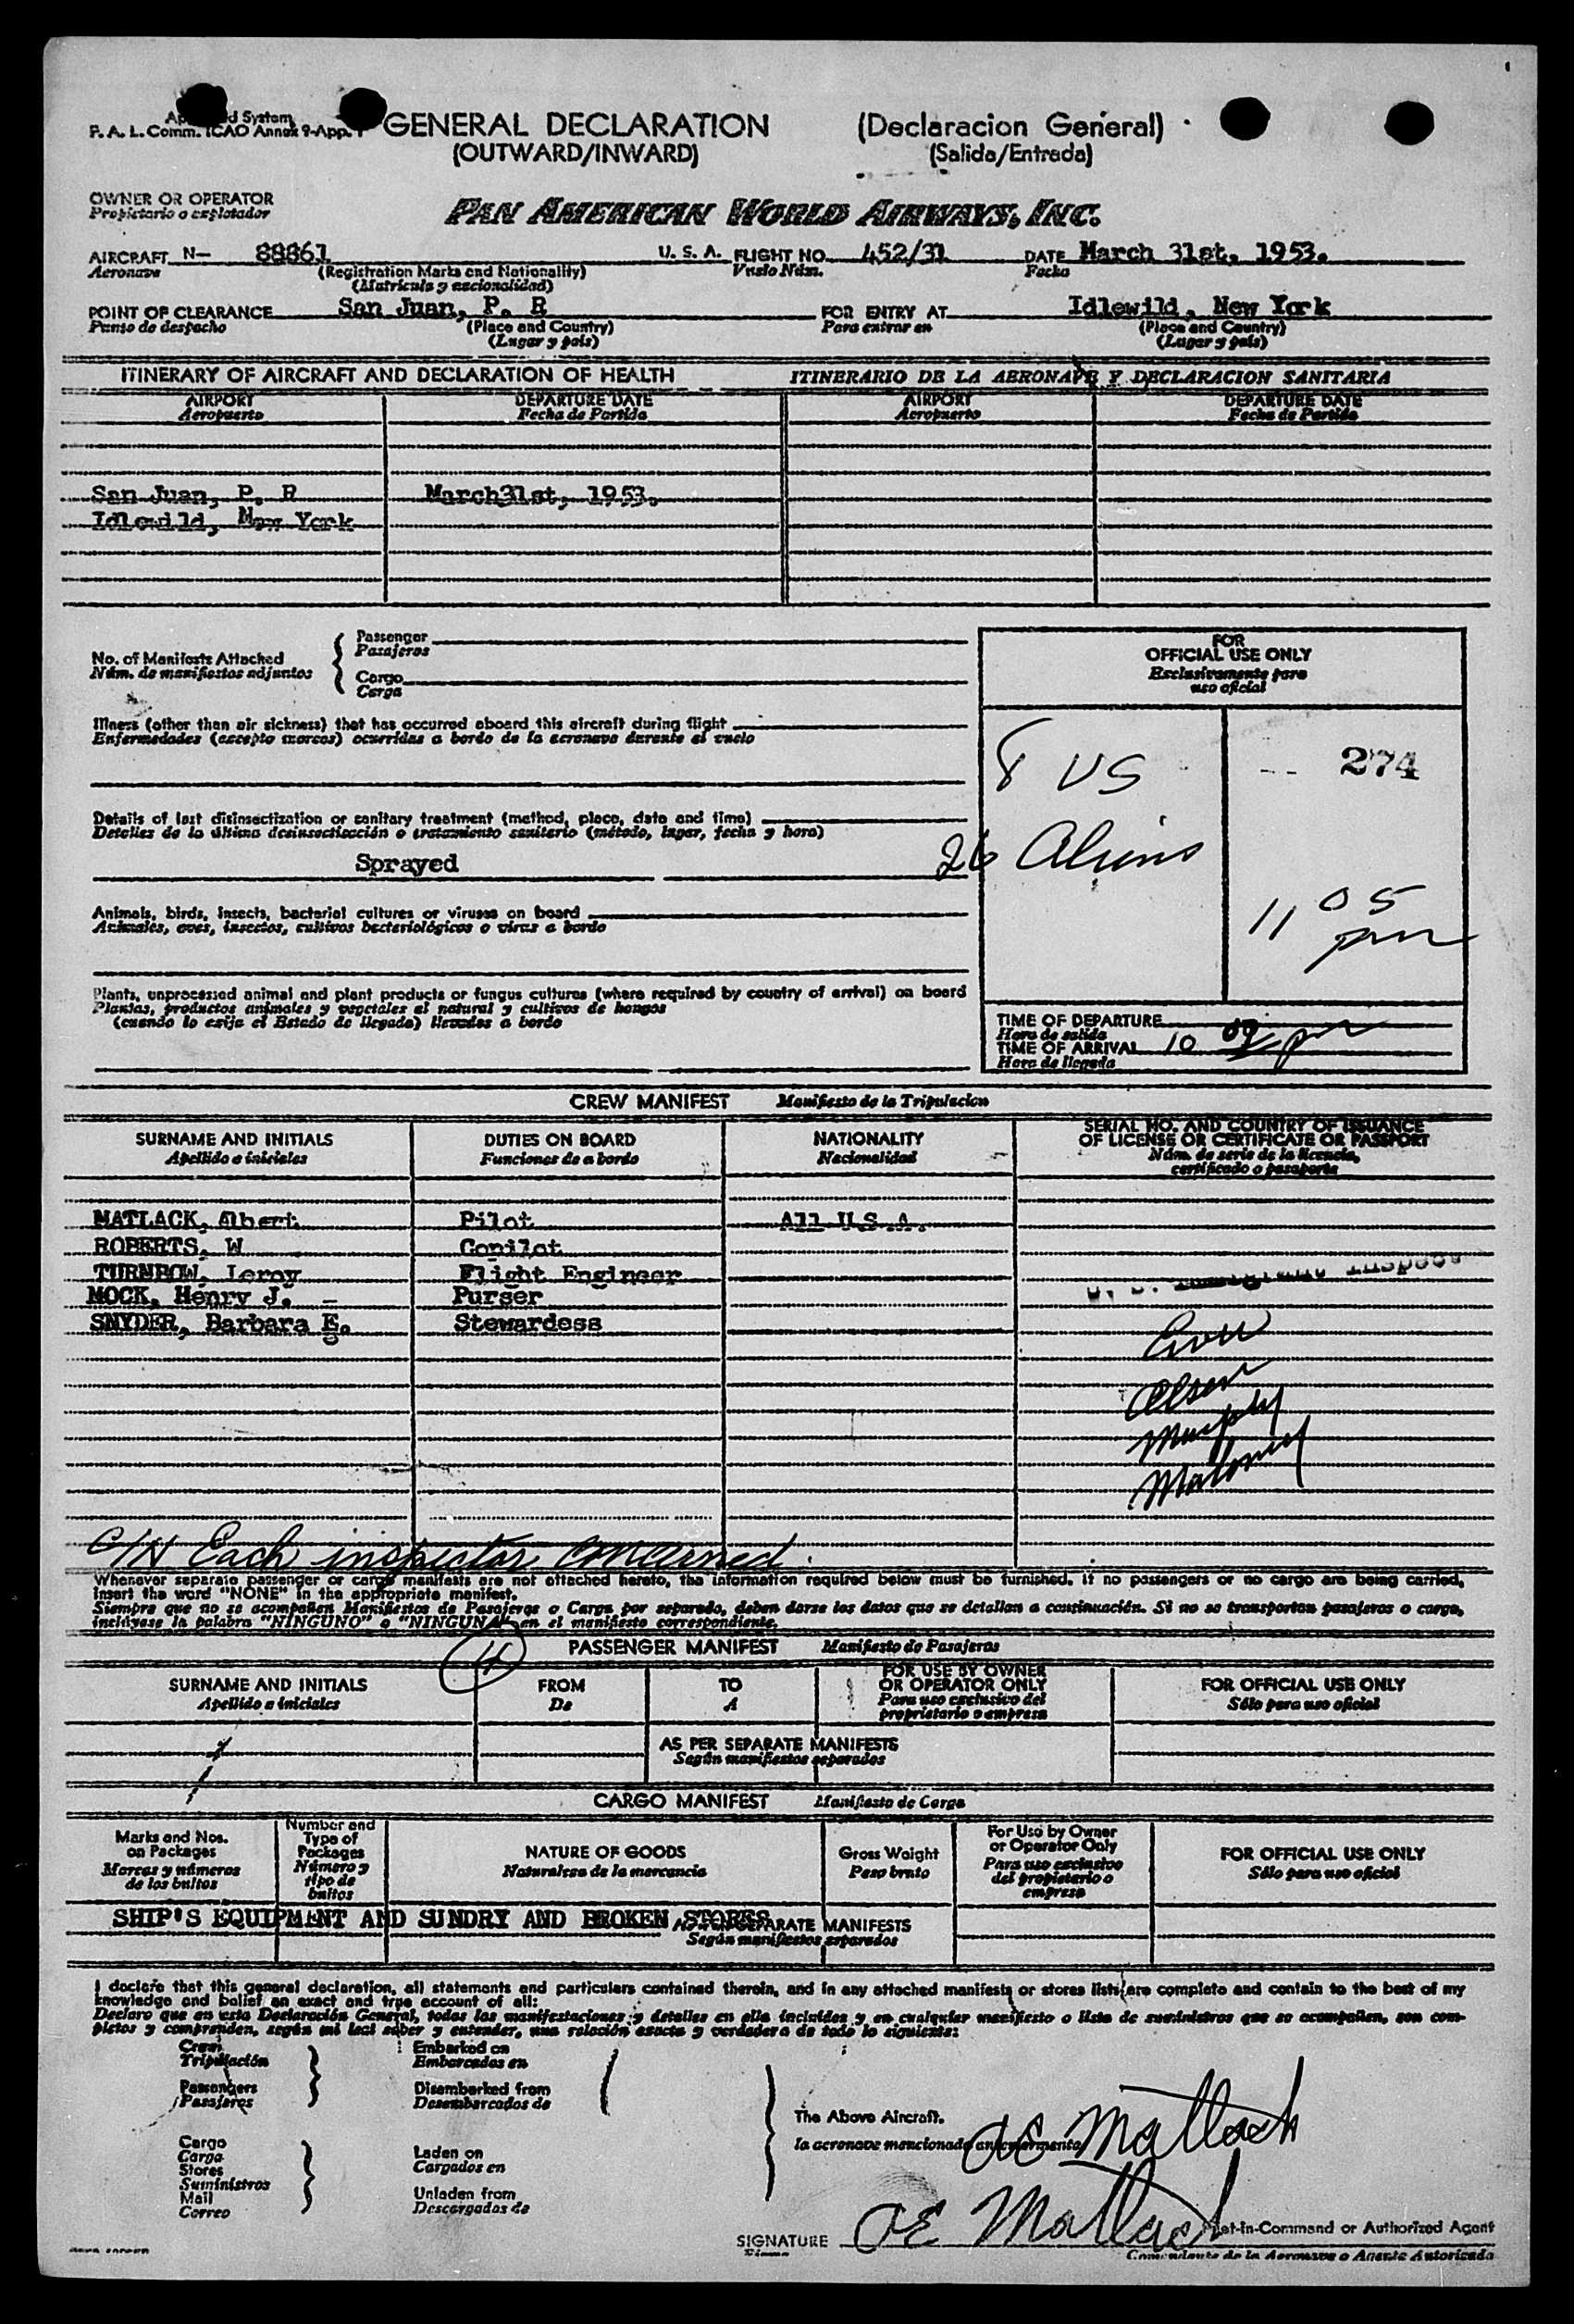 F. A. L. Comm. ICAO Annex 9-App.
GENERAL DECLARATION (Declaracion General)
(OUTWARD/INWARD) (Salida/Entrada)
OWNER OR OPERATOR
Propietario o explotador
PAN AMERICAN WORLD AIRWAYS, INC.
AIRCRAFT N- 88861 U. S. A. FLIGHT NO. 452/31 DATE March 31st, 1953.
Aeronave (Registration Marks and Nationality) Vuelo Núm. Fecha
(Matrícula y nacionalidad)
POINT OF CLEARANCE San Juan, P. R FOR ENTRY AT Idlewild, New York
Punto de despacho (Place and Country) Para entrar en (Place and Country)
(Lugar y país) (Lugar y país)
ITINERARY OF AIRCRAFT AND DECLARATION OF HEALTH ITINERARIO DE LA AERONAVE Y DECLARACION SANITARIA
AIRPORT DEPARTURE DATE AIRPORT DEPARTURE DATE
Aeropuerto Fecha de Partida Aeropuerto Fecha de Partida
San Juan, P. R March31st, 1953.
Idlewild, New York
Passenger
Pasajeros
No. of Manifests Attached
Núm. de manifiestos adjuntos
Cargo
Carga
FOR
OFFICIAL USE ONLY
Exclusivamente para
uso oficial
Illness (other than air sickness) that has occurred aboard this aircraft during flight
Enfermedades (excepto mareos) ocurridas a bordo de la aeronave durante el vuelo
8 US
274
Details of last disinsectization or sanitary treatment (method, place, date and time)
Detalles de la última desinsectización o tratamiento sanitario (método, lugar, fecha y hora)
Sprayed
26 Aliens
Animals, birds, insects, bacterial cultures or viruses on board
Animales, aves, insectos, cultivos bacteriológicos o virus a bordo
11 05
pm
Plants, unprocessed animal and plant products or fungus cultures (where required by country of arrival) on board
Plantas, productos animales y vegetales al natural y cultivos de hongos
(cuando lo exija el Estado de llegada) llevados a bordo
TIME OF DEPARTURE
Hora de salida
TIME OF ARRIVAL 10 09 pm
Hora de llegada
CREW MANIFEST Manifiesto de la Tripulacion
SURNAME AND INITIALS DUTIES ON BOARD NATIONALITY SERIAL NO. AND COUNTRY OF ISSUANCE
OF LICENSE OR CERTIFICATE OR PASSPORT
Apellido e iniciales Funciones de a bordo Nacionalidad Núm. de serie de la licencia,
certificado o pasaporte
MATLACK, Albert Pilot All U.S.A.
ROBERTS, W Copilot
TURNBOW, Leroy Flight Engineer
U. S. Immigrant Inspect
MOCK, Henry J. - Purser
SNYDER, Barbara E. Stewardess
Olsen
Murphy
Maloney
C/N Each inspector concerned
Whenever separate passenger or cargo manifests are not attached hereto, the information required below must be furnished. If no passengers or no cargo are being carried,
insert the word "NONE" in the appropriate manifest.
Siempre que no se acompañen Manifiestos de Pasajeros o Carga por separado, deben darse los datos que se detallan a continuación. Si no se transportan pasajeros o carga,
inclúyase la palabra "NINGUNO" o "NINGUNA" en el manifiesto correspondiente.
PASSENGER MANIFEST Manifiesto de Pasajeros
SURNAME AND INITIALS FROM TO FOR USE BY OWNER
OR OPERATOR ONLY FOR OFFICIAL USE ONLY
Apellido e iniciales De A Para uso exclusivo del
propietario o empresa Sólo para uso oficial
AS PER SEPARATE MANIFESTS
Según manifiestos separados
CARGO MANIFEST Manifiesto de Carga
Marks and Nos.
on Packages
Marcas y números
de los bultos
Number and
Type of
Packages
Número y
tipo de
bultos
NATURE OF GOODS
Naturaleza de la mercancía
Gross Weight
Peso bruto
For Use by Owner
or Operator Only
Para uso exclusivo
del propietario o
empresa
FOR OFFICIAL USE ONLY
Sólo para uso oficial
SHIP'S EQUIPMENT AND SUNDRY AND BROKEN STORES
SEPARATE MANIFESTS
Según manifiestos separados
I declare that this general declaration, all statements and particulars contained therein, and in any attached manifests or stores lists are complete and contain to the best of my
knowledge and belief an exact and true account of all:
Declaro que en esta Declaración General, todas las manifestaciones y detalles en ella incluidos y en cualquier manifiesto o lista de suministros que se acompañen, son com-
pletos y comprenden, según mi leal saber y entender, una relación exacta y verdadera de todo lo siguiente:
Crew Embarked on
Tripulación Embarcados en
Passengers Disembarked from
Pasajeros Desembarcados de
The Above Aircraft.
la aeronave mencionada anteriormente
AE Matlack
Cargo
Carga
Stores
Suministros
Mail
Correo
Laden on
Cargados en
Unladen from
Descargados de
SIGNATURE AE Matlack Pilot-in-Command or Authorized Agent
Firma Comandante de la Aeronave o Agente Autorizado